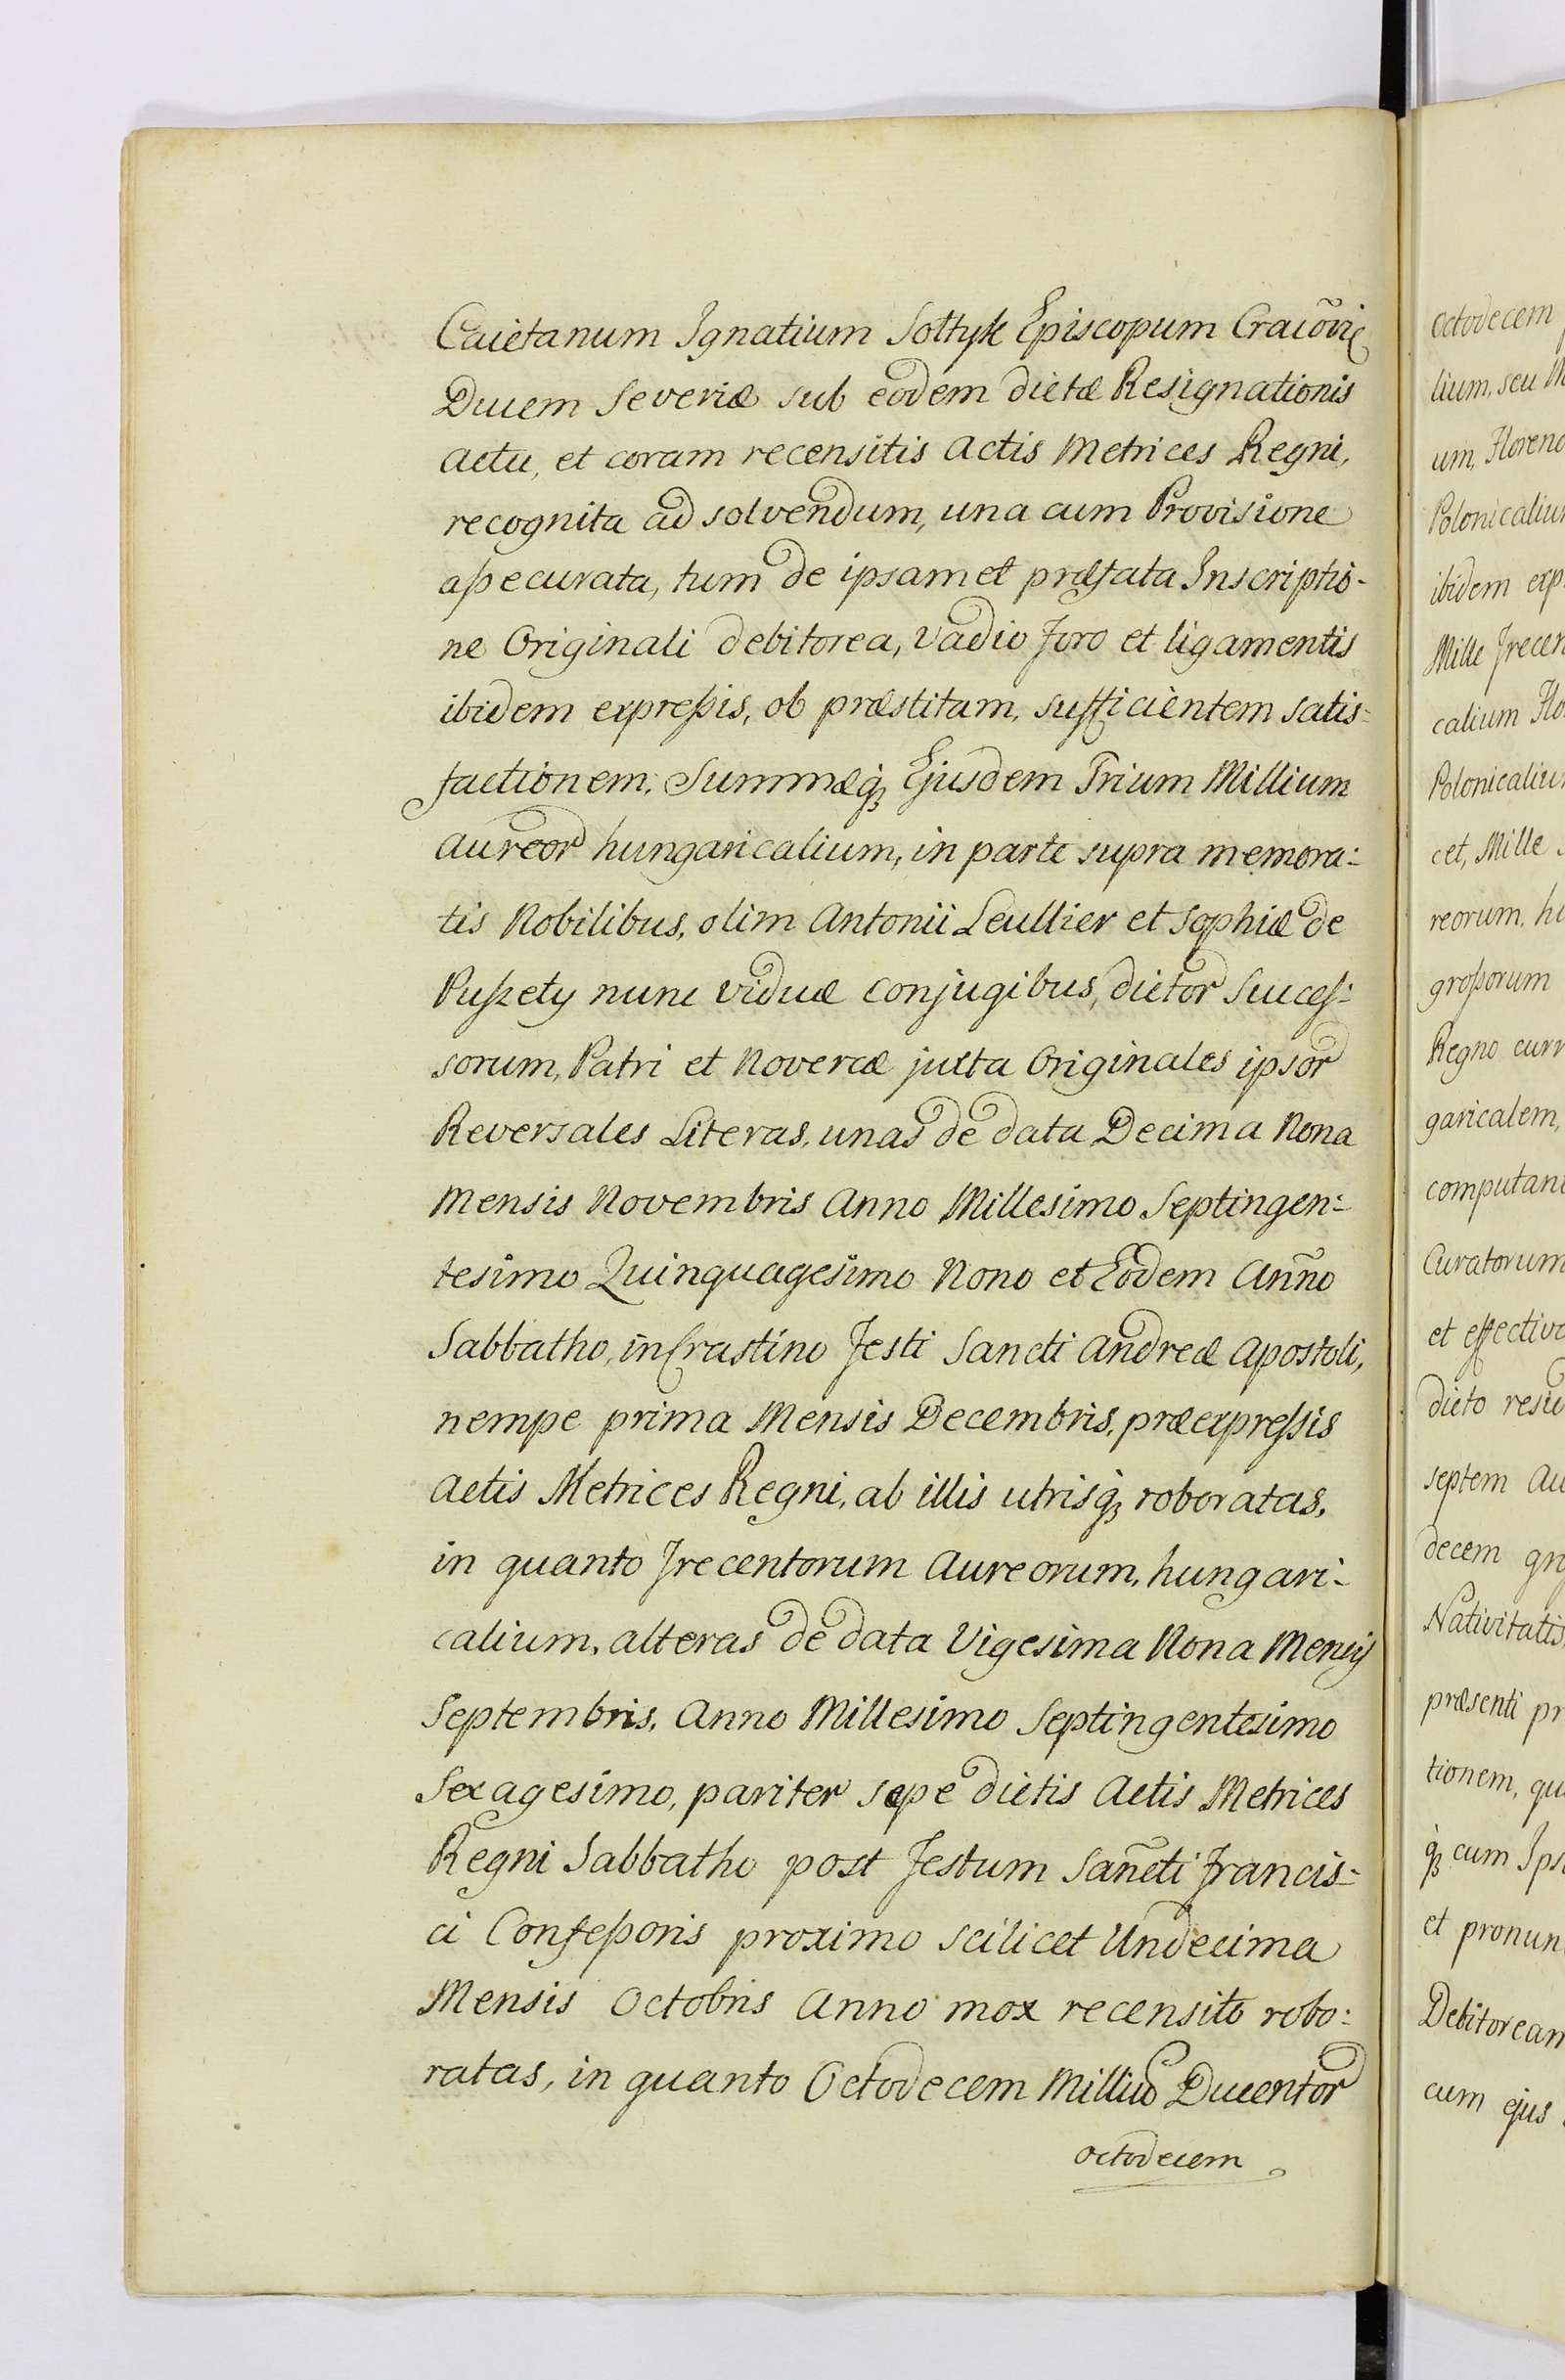 Caietanum Ignatium Sołtyk Episcopum Cracõvię
Ducem Severiæ sub eodem dictæ Resignationis
actu, et coram recensitis Actis Metrices Regni,
recognita ad solvendum, una cum Provisione
aßecurata, tum de ipsamet præfata Inscriptio-
ne Originali debitorea, vadio foro et ligamentis
ibidem expreßis, ob præstitam, sufficientem satis-
factionem, Summæq₃ Ejusdem Trium Millium
aureor hungaricalium, in parte supra memora-
tis Nobilibus, olim Antonii Leullier et Sophiæ de
Puszety nunc viduæ conjugibus, dictor Succeſ-
sorum, Patri et Novercæ juxta Originales ipsor
Reversales Literas, unas de data Decima Nona
Mensis Novembris Anno Millesimo Septingen-
tesimo Quinquagesimo Nono et Eodem Anño
Sabbatho, in Crastino Festi Sancti Andreæ Apostoli,
nempe prima Mensis Decembris, præexpreßis
Actis Metrices Regni, ab illis utrisq₃ roboratas,
in quanto Trecentorum Aureorum, hungari-
calium, alteras de data Vigesima Nona Mensis
Septembris, Anno Millesimo Septingentesimo
Sexagesimo, pariter sæpe dictis Actis Metrices
Regni Sabbatho post Festum Sañcti Francis-
ci Confeßoris proximo scilicet Undecima
Mensis Octobris Anno mox recensito robo-
ratas, in quanto Octodecem Milliũ Ducentor
octodecem
octodecem
lium, seu
um, Floreno
Polonicaliu
ibidem exp
Mille Trecen
calium Flo
Polonicaliu
cet, Mille
reorum, hu
großorum
Regno curr
garicalem,
computan
Curatorum
et effectiv
dicto resi
septem Au
decem gro
Nativitatis
præsenti pr
tionem, qu
q₃ cum Ips
et pronun
Debitorean
cum ejus